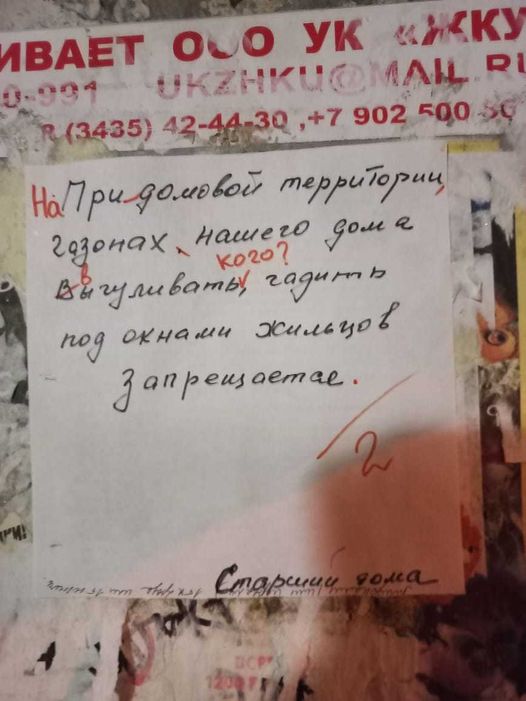 ИВАЕТ ООО УК «ЖКУ
0-991 UKZHKU@MAIL.RU
(3435) 42-44-30 ,+7 902 500 50
На При-домовой территории,
газонах, нашего дома
кого?
в
Выгуливать, гадить
под окнами жильцов
Запрещается.
2
Старший дома
1200 Г